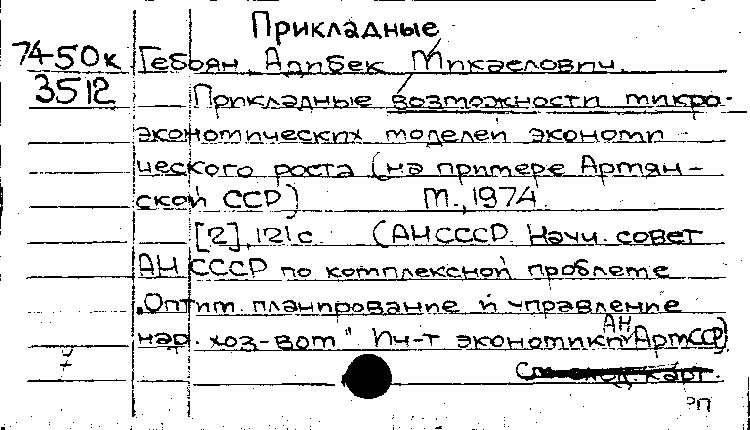 Прикладные
74-50к Гебоян, Адибек Микаелович.
3512 Прикладные возможности микро-
экономических моделей экономи-
ческого роста (на примере Армян-
ской ССР) М., 1974.
[2], 121с. (АН СССР. Науч. совет
АН СССР по комплексной проблеме
"Оптим. планирование и управление
нар. хоз-вом" Ин-т экономики АН АрмССР)
7
карт.